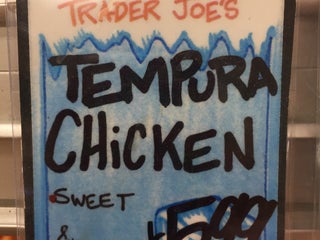 TRADER JOE'S
TEMPURA
CHiCKEN
SWEET
&
5.99